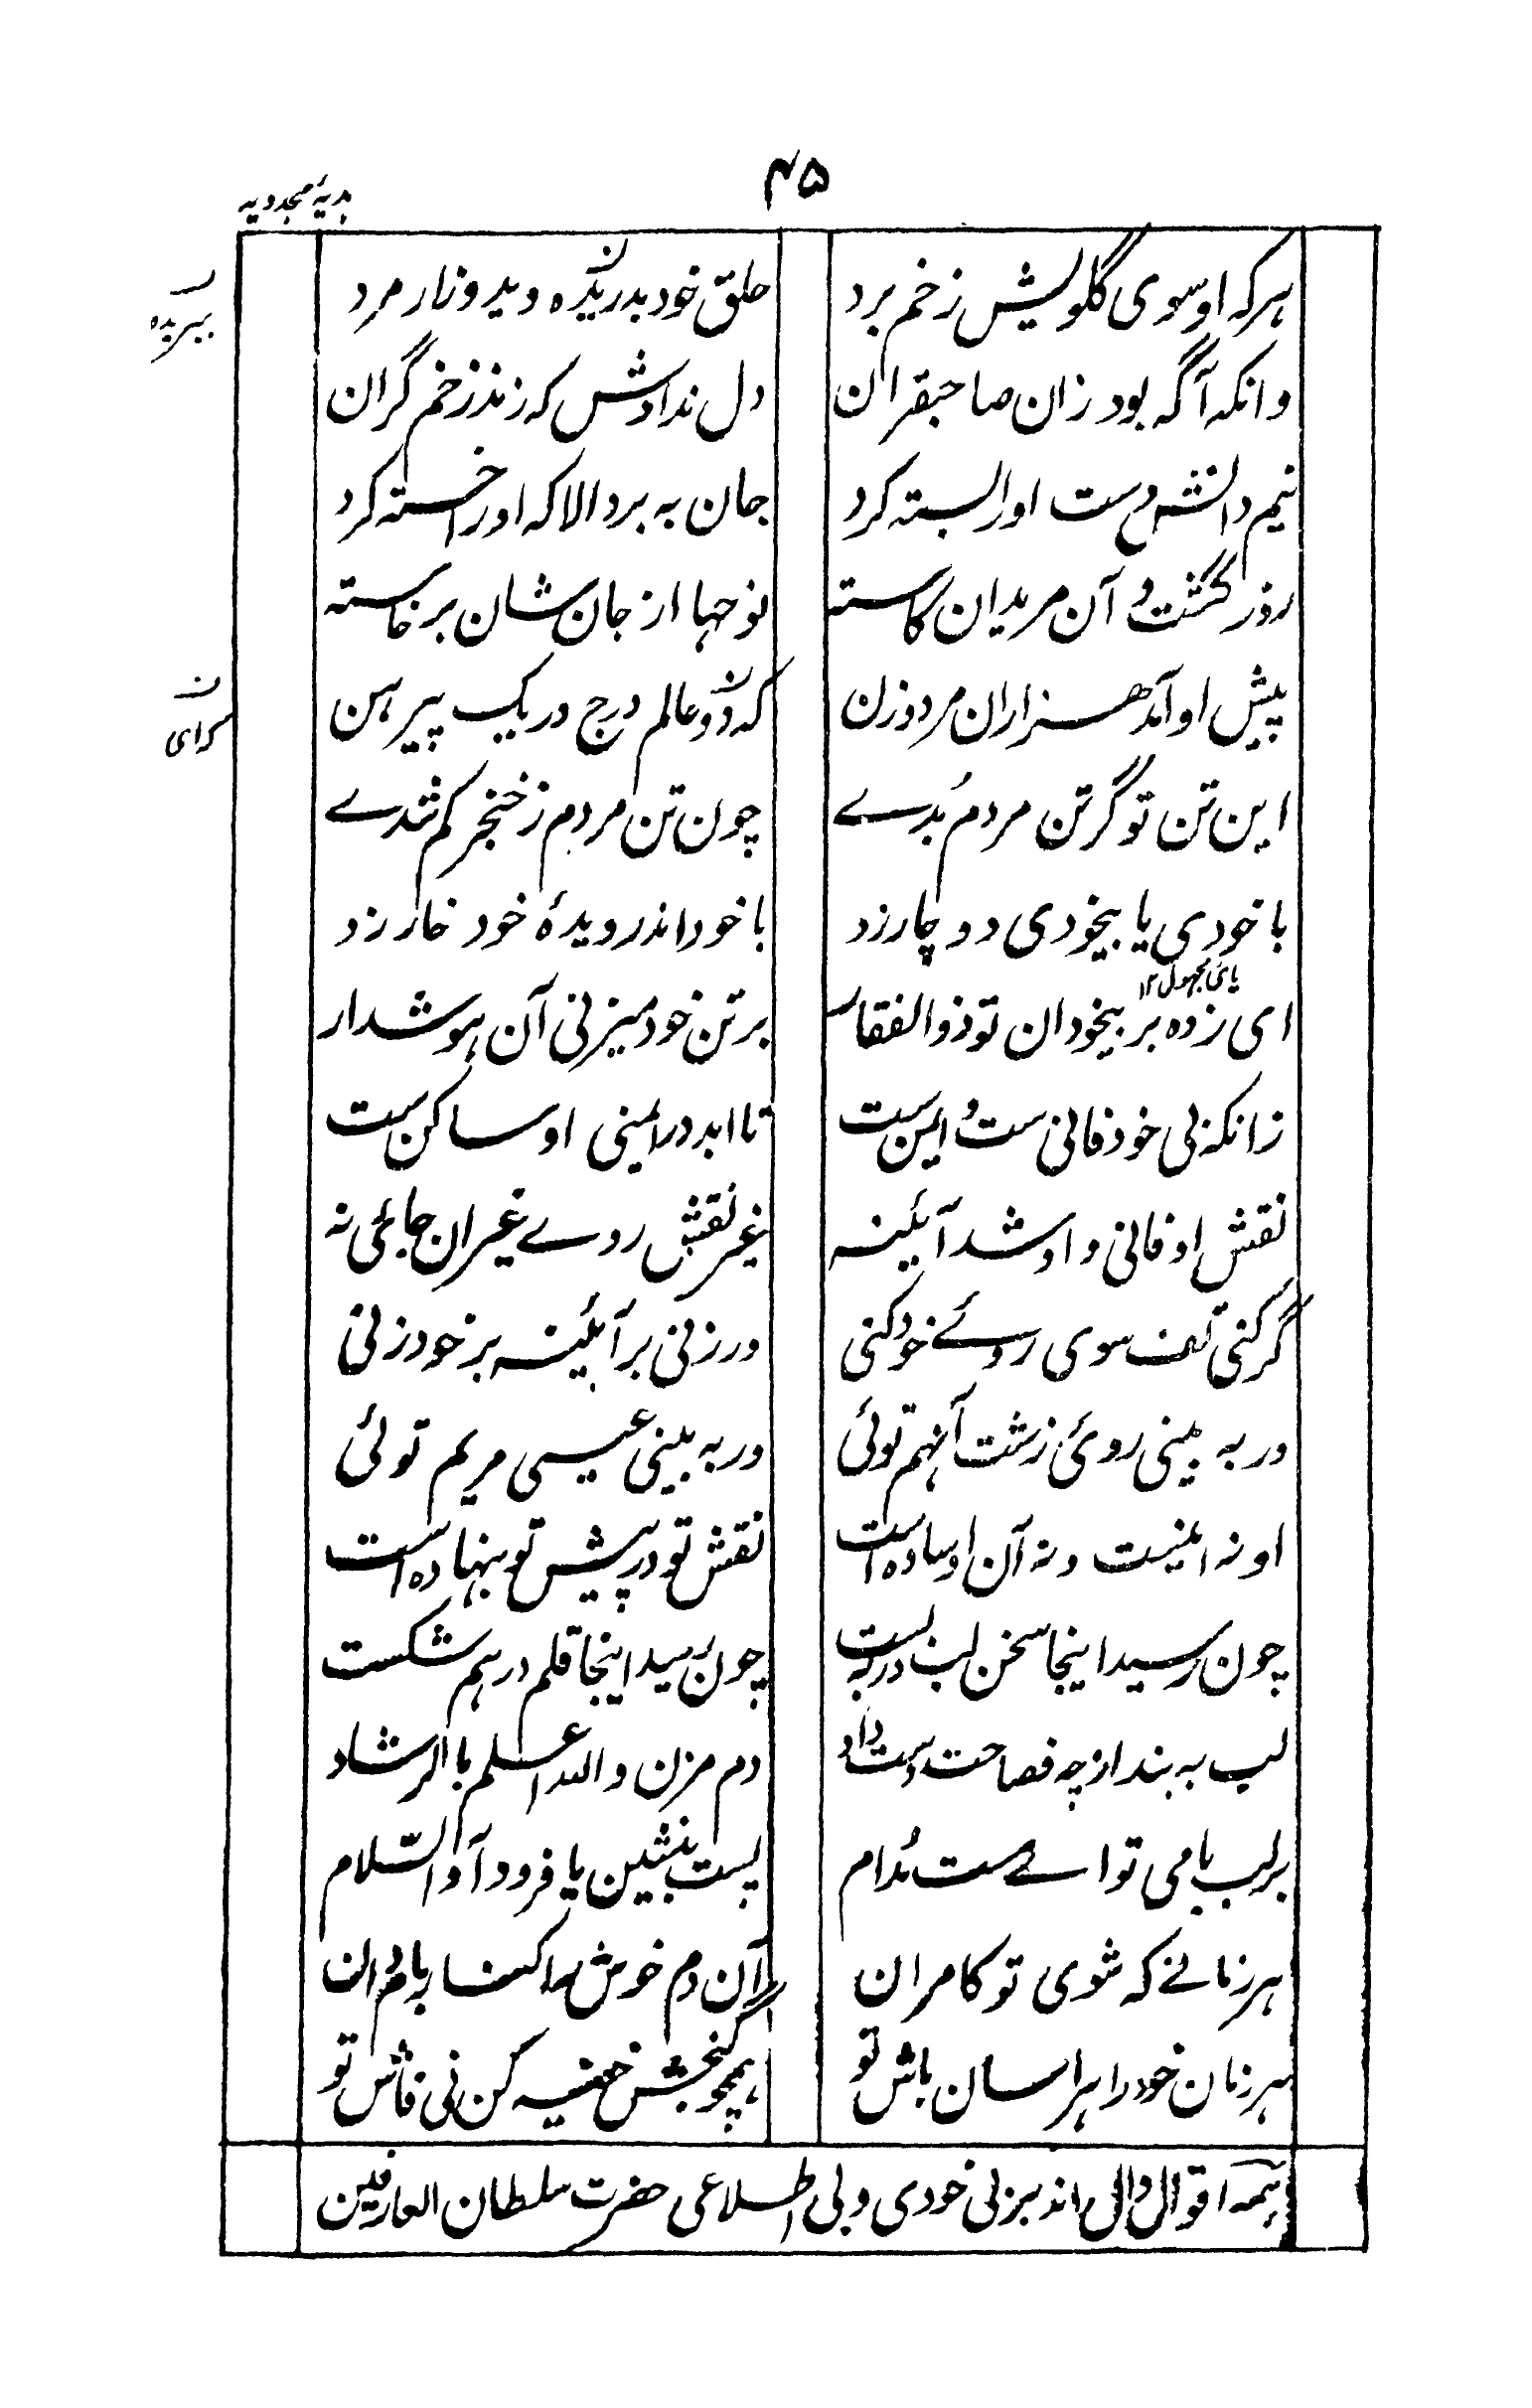 ۴۵
ہدیۂ مجددیہ
ہرکہ او سوی گلویش زخم برد حلق خود بدریدہ دید و زار مرد
ببریدہ
وانکہ آگہ بود زان صاحبقران دل ندادش کہ زند زخم گران
نیم دانش دست او را بستہ کرد جان بہ برد الا کہ او را خستہ کرد
روز گشت و آن مریدان کاستہ نوحہا از جان شان برخاستہ
پیش او آمد ہزاران مرد و زن کہ دو عالم درج در یک پیرہن
کای
این تن تو گر تن مردم بُدے چون تن مردم ز خنجر گم شدے
با خودی یا بیخودی دو چار زد با خود اندر دیدۂ خود خار زد
یای مجہول ۱۲
ای زدہ بر بیخودان تو ذوالفقار بر تن خود میزنی آن ہوشدار
زانکہ بی خود فانی ست و ایمن ست تا ابد در ایمنی او ساکن ست
نقش او فانی و او شد آئینہ غیر نقش روے غیر آن جای نہ
گر کنی تف سوی روئے خود کنی ور زنی بر آئینہ بر خود زنی
ور بہ بینی روئ زشت آنہم توئی ور بہ بینی عیسی مریم توئی
او نہ اینست و نہ آن او سادہ است نقش تو در پیش تو بنہادہ است
چون رسید اینجا سخن لب در بہ بست چون رسید اینجا قلم درہم شکست
لب بہ بند ار چہ فصاحت دست داد دم مزن واللہ اعلم بالرشاد
بر لب بامی تو اے مست مُدام پست بنشین یا فرود آ والسّلام
ہر زمانے کہ شوی تو کامران آن دم خوش را کنار بام دان
ہر زمان خود را ہراسان باش تو ہمچو گنجش خفیہ کن نی فاش تو
ہمہ اقوال دال اند بر بی خودی و بی اطلاعی حضرت سلطان العارفین